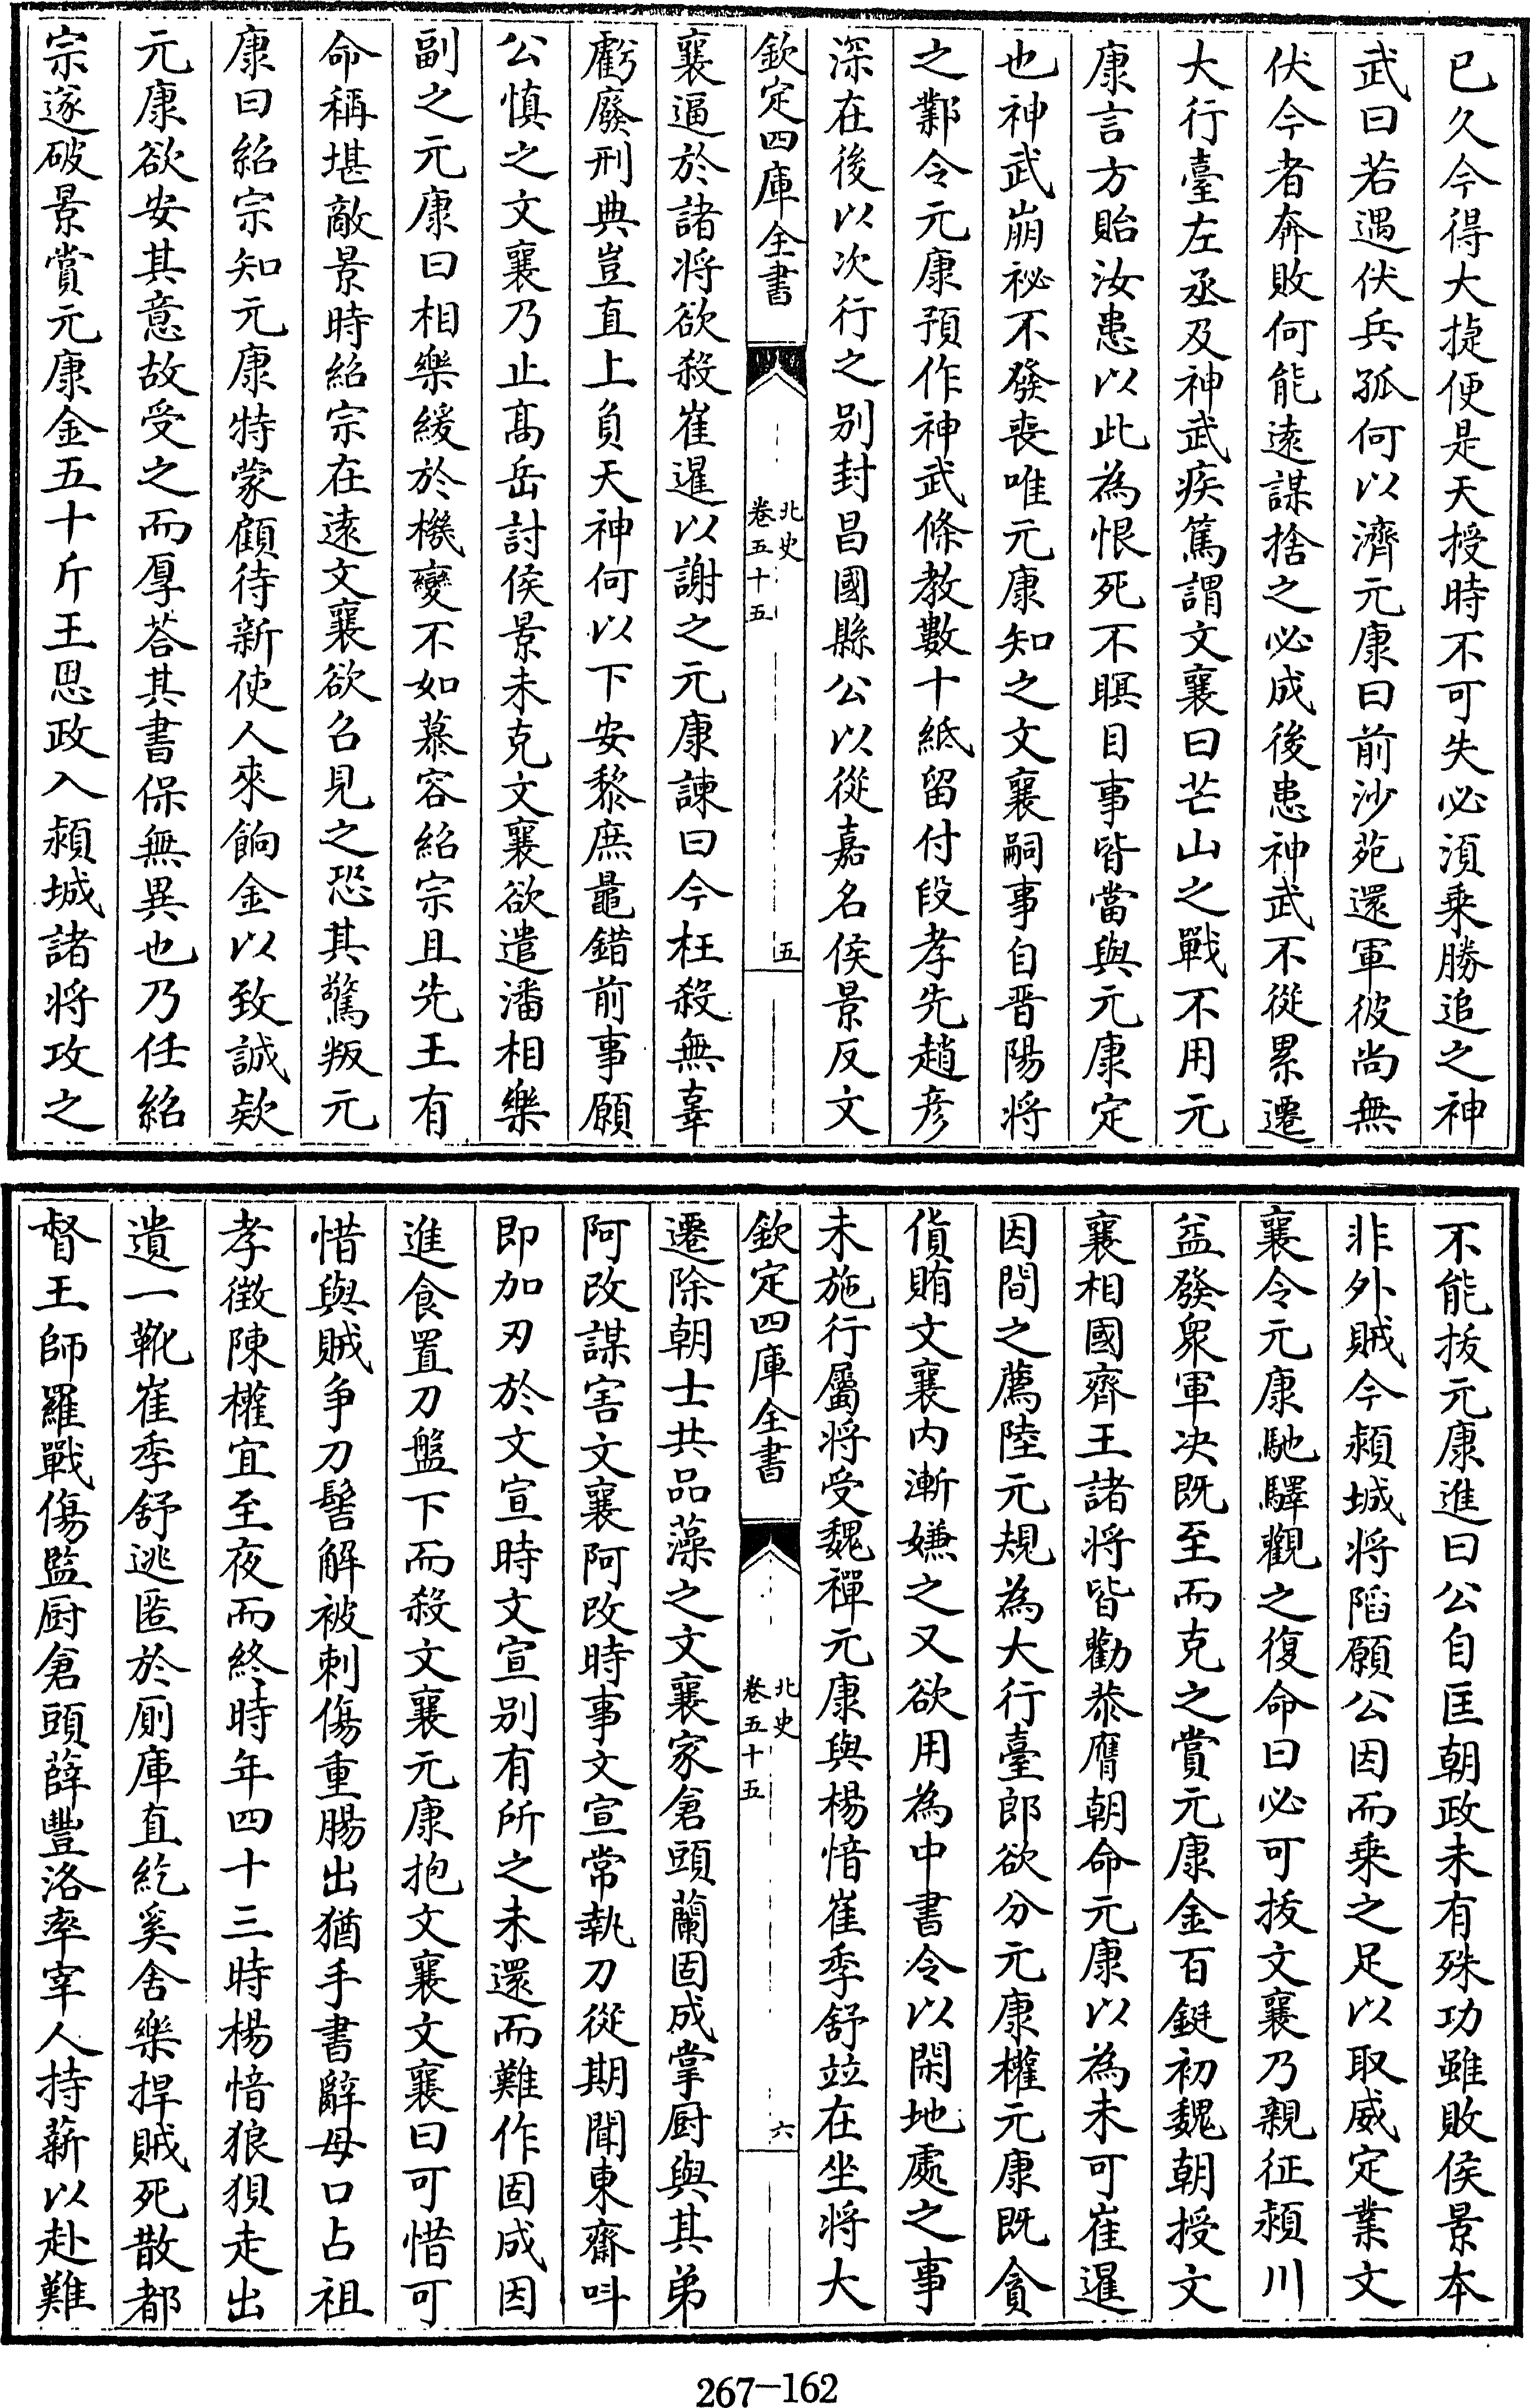 已久今得大捷便是天授時不可失必須乗勝追之神
武曰若遇伏兵孤何以濟元康曰前沙苑還軍彼尚無
伏今者奔敗何能逺謀捨之必成後患神武不從累遷
大行臺左丞及神武疾篤謂文襄曰芒山之戰不用元
康言方貽汝患以此為恨死不瞑目事皆當與元康定
也神武崩祕不發喪唯元康知之文襄嗣事自晉陽将
之鄴令元康預作神武條教數十紙留付段孝先趙彦
深在後以次行之别封昌國縣公以從嘉名侯景反文
欽定四庫全書
北史
卷五十五
五
襄逼於諸将欲殺崔暹以謝之元康諫曰今枉殺無辜
虧廢刑典豈直上負天神何以下安黎庶鼂錯前事願
公慎之文襄乃止髙岳討侯景未克文襄欲遣潘相樂
副之元康曰相樂緩於機變不如慕容紹宗且先王有
命稱堪敵景時紹宗在逺文襄欲召見之恐其驚叛元
康曰紹宗知元康特蒙顧待新使人來餉金以致誠欵
元康欲安其意故受之而厚荅其書保無異也乃任紹
宗遂破景賞元康金五十斤王思政入潁城諸将攻之
不能拔元康進曰公自匡朝政未有殊功雖敗侯景本
非外賊今潁城将陷願公因而乗之足以取威定業文
襄令元康馳驛觀之復命曰必可拔文襄乃親征潁川
益發衆軍决既至而克之賞元康金百鋌初魏朝授文
襄相國齊王諸将皆勸恭膺朝命元康以為未可崔暹
因間之薦陸元規為大行臺郎欲分元康權元康既貪
貨賄文襄内漸嫌之又欲用為中書令以閑地處之事
未施行屬将受魏禪元康與楊愔崔季舒竝在坐将大
欽定四庫全書
北史
卷五十五
六
遷除朝士共品藻之文襄家倉頭蘭固成掌厨與其弟
阿改謀害文襄阿改時事文宣常執刀從期聞東齋呌
即加刃於文宣時文宣别有所之未還而難作固成因
進食置刀盤下而殺文襄元康抱文襄文襄曰可惜可
惜與賊争刀髻解被刺傷重腸出猶手書辭母口占祖
孝徵陳權宜至夜而終時年四十三時楊愔狼狽走出
遺一靴崔季舒逃匿於厠庫直紇奚舍樂捍賊死散都
督王師羅戰傷監厨倉頭薛豐洛率宰人持薪以赴難
267-162